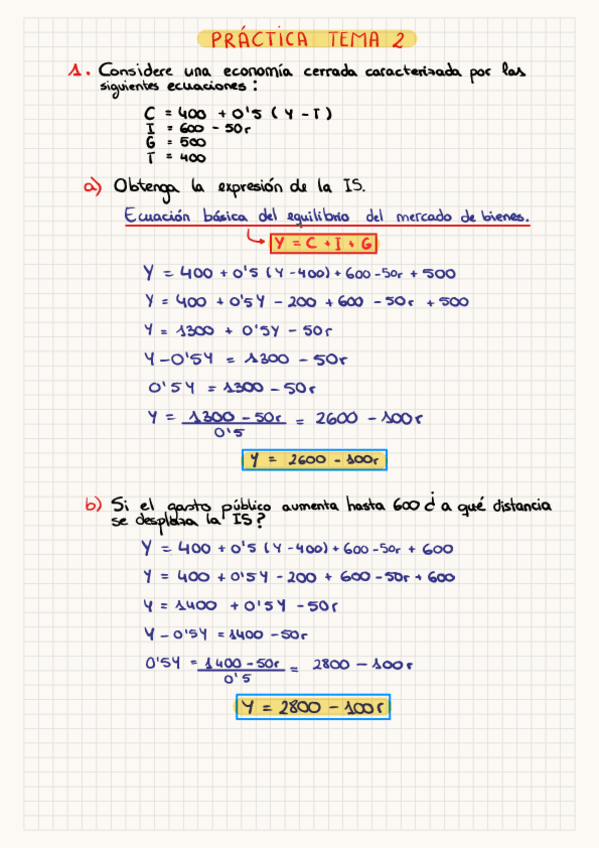 PRÁCTICA TEMA 2
1. Considere una economía cerrada caracterizada por las
siguientes ecuaciones:
C = 400 + 0'5 (Y - T)
I = 600 - 50r
G = 500
T = 400
a) Obtenga la expresión de la IS.
Ecuación básica del equilibrio del mercado de bienes.
Y = C + I + G
Y = 400 + 0'5 (Y - 400) + 600 - 50r + 500
Y = 400 + 0'5Y - 200 + 600 - 50r + 500
Y = 1300 + 0'5Y - 50r
Y - 0'5Y = 1300 - 50r
0'5Y = 1300 - 50r
Y = 1300 - 50r / 0'5 = 2600 - 100r
Y = 2600 - 100r
b) Si el gasto público aumenta hasta 600 ¿a qué distancia
se desplaza la IS?
Y = 400 + 0'5 (Y - 400) + 600 - 50r + 600
Y = 400 + 0'5Y - 200 + 600 - 50r + 600
Y = 1400 + 0'5Y - 50r
Y - 0'5Y = 1400 - 50r
0'5Y = 1400 - 50r / 0'5 = 2800 - 100r
Y = 2800 - 100r